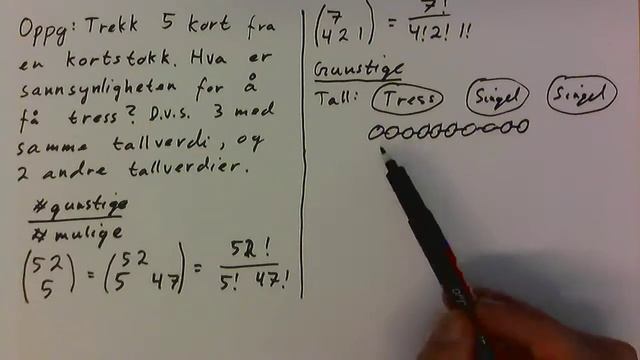 Oppg: Trekk 5 kort fra
en kortstokk. Hva er
sannsynligheten for å
få tress? D.v.s. 3 med
samme tallverdi, og
2 andre tallverdier.
# gunstige
# mulige
(52 5) = (52 5 47) = 52! / 5! 47!
(7 4 2 1) = 7! / 4! 2! 1!
Gunstige
Tall: Tress Singel Singel